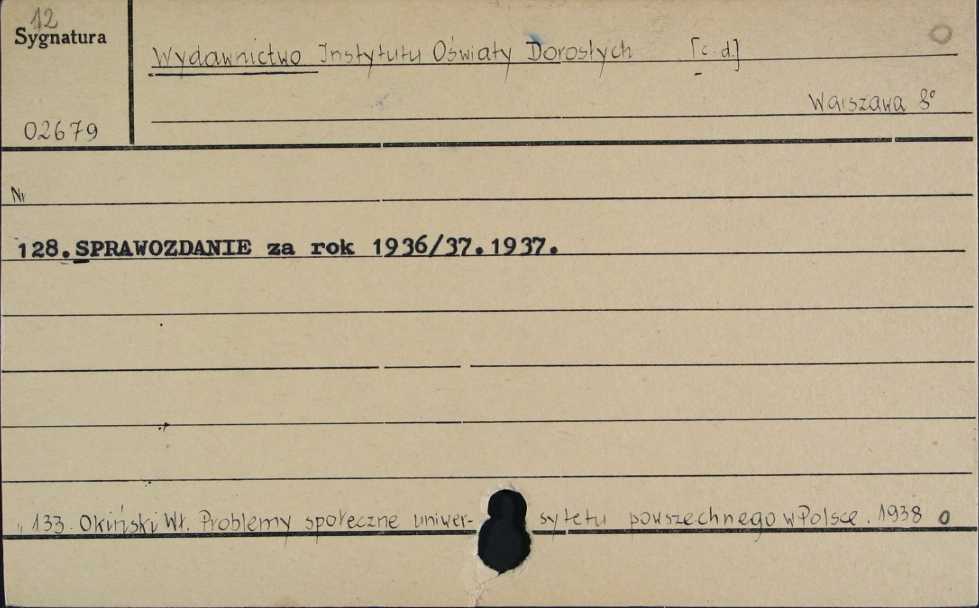 12
Sygnatura
Wydawnictwo Instytutu Oświaty Dorosłych [c.d.]
Warszawa 8°
02679
Nr
128. SPRAWOZDANIE za rok 1936/37. 1937.
133. Okiński Wł. Problemy społeczne uniwer- sytetu powszechnego w Polsce. 1938